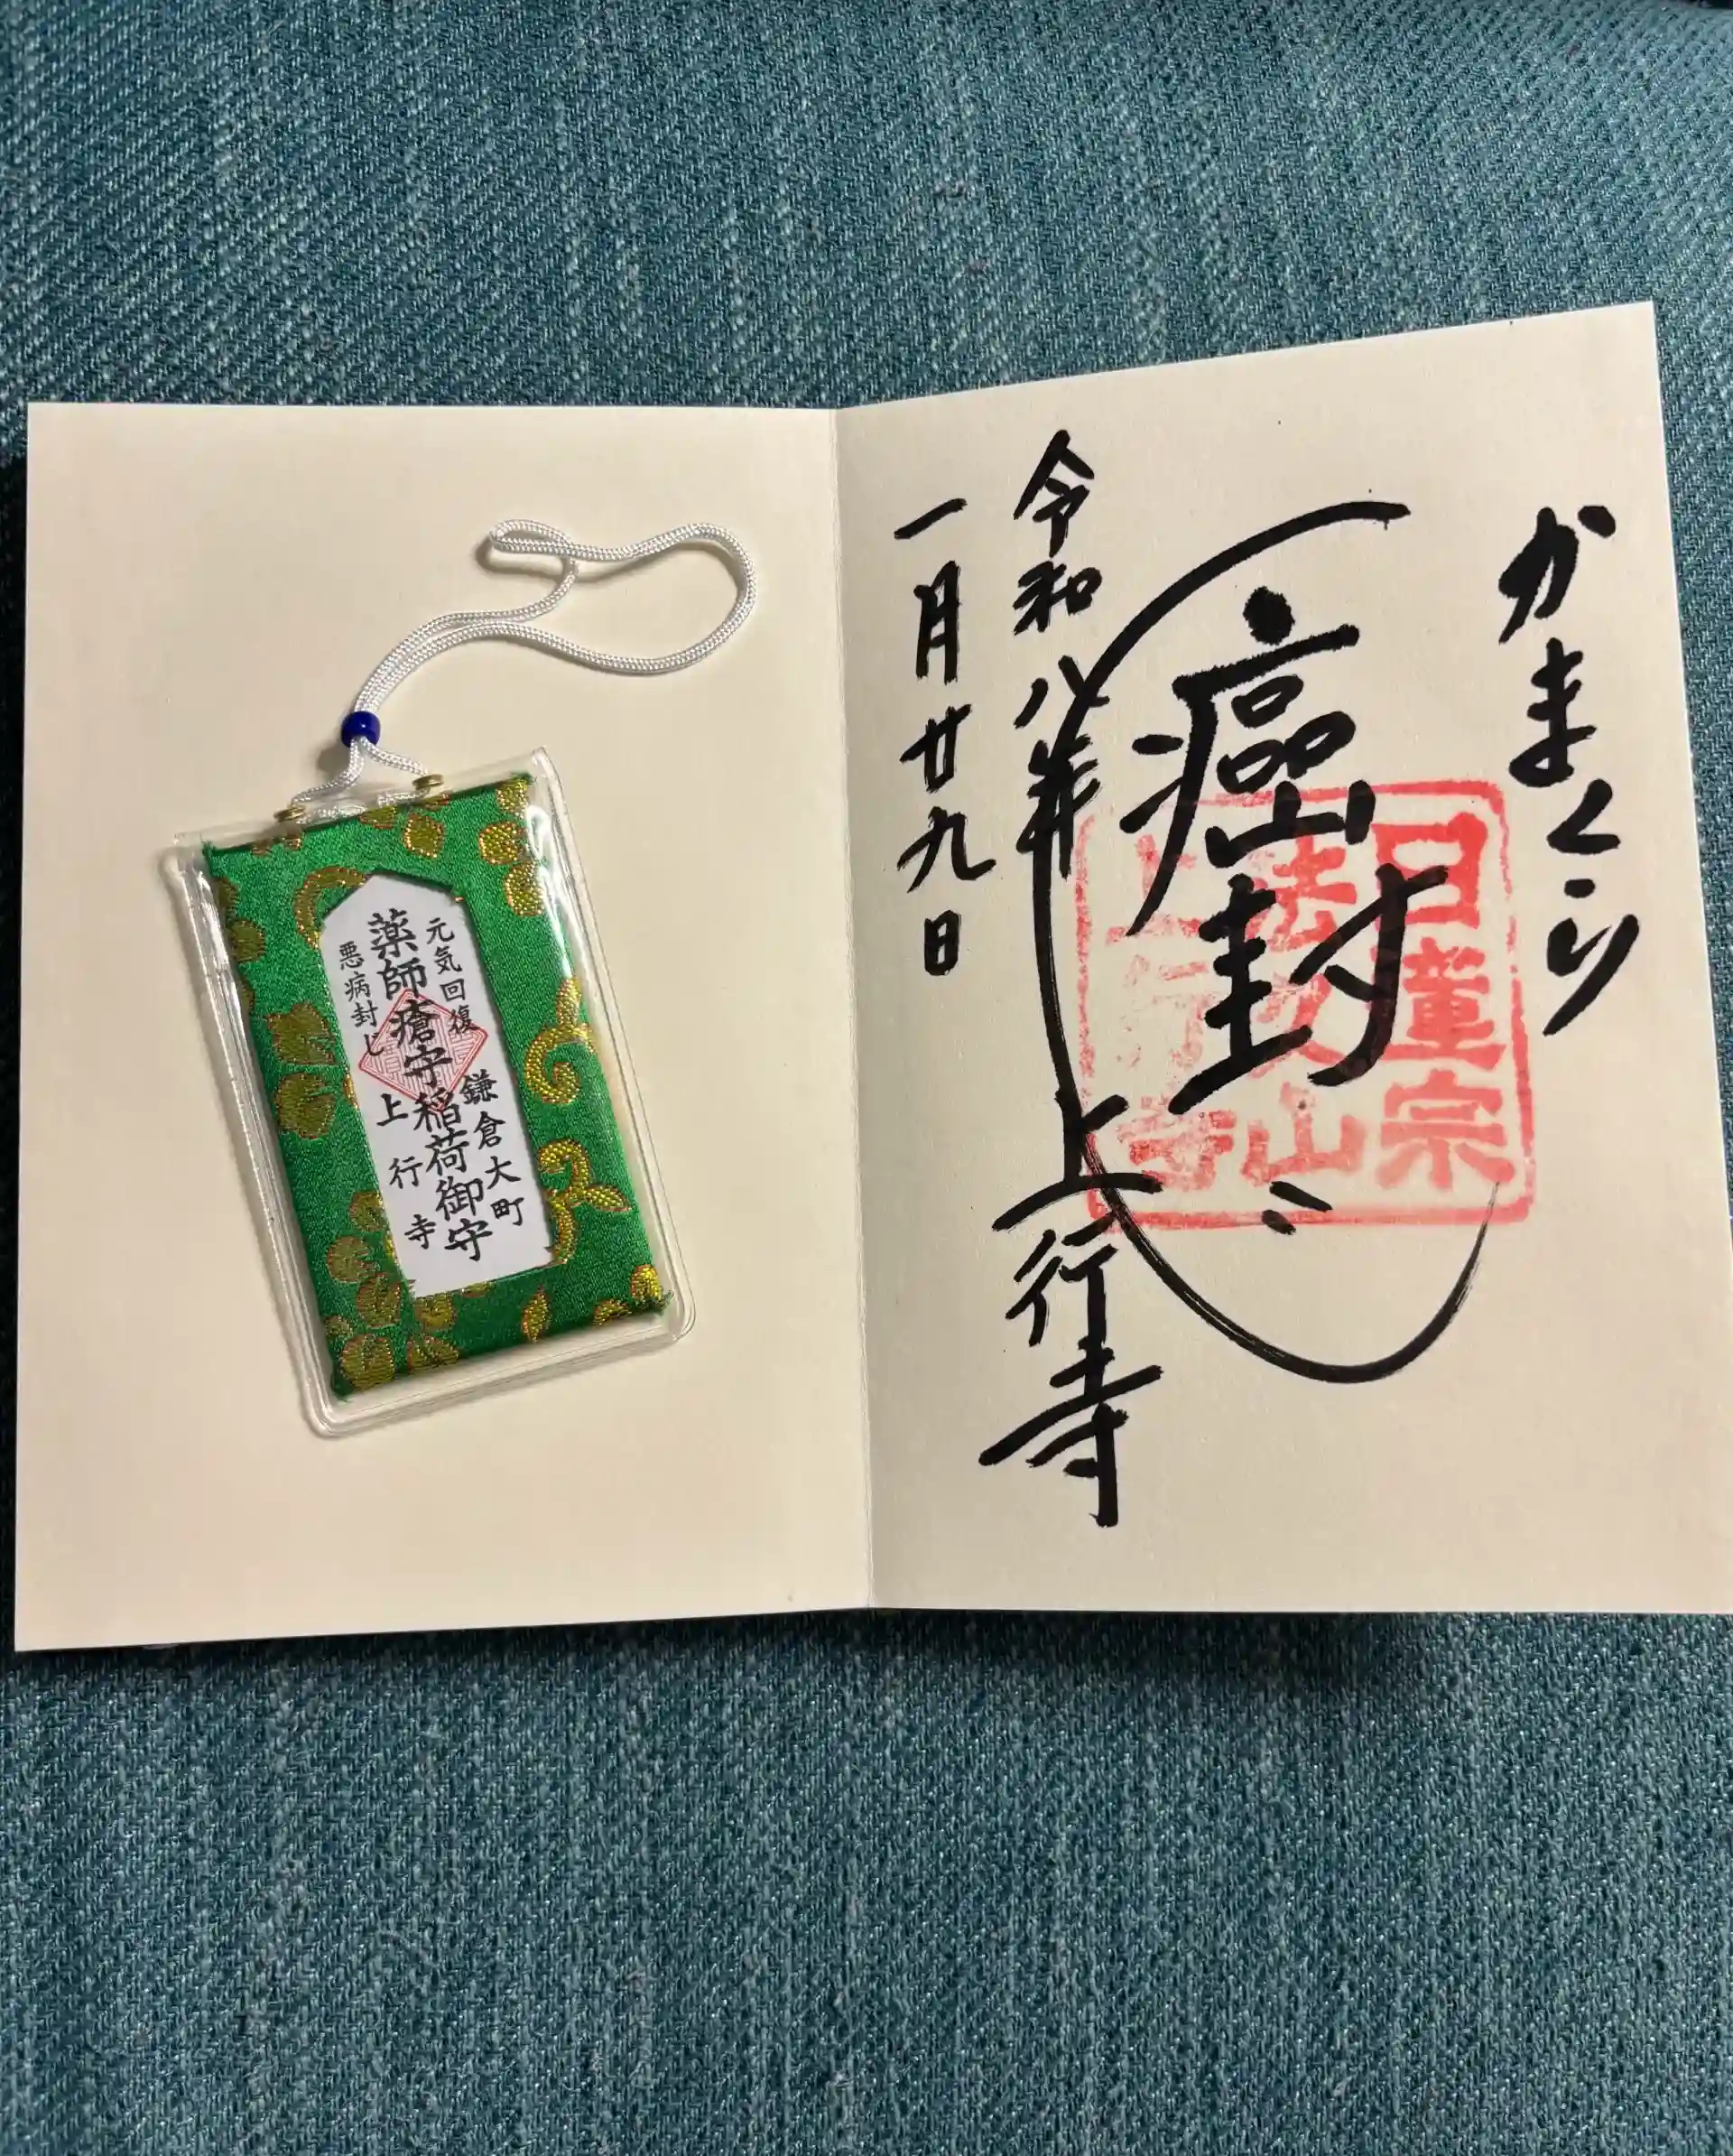 かまくら
癌封じ
令和八年
一月廿九日
上行寺
日蓮宗
法久山
上行寺
元気回復
鎌倉大町
薬師瘡守稲荷御守
悪病封じ
上行寺